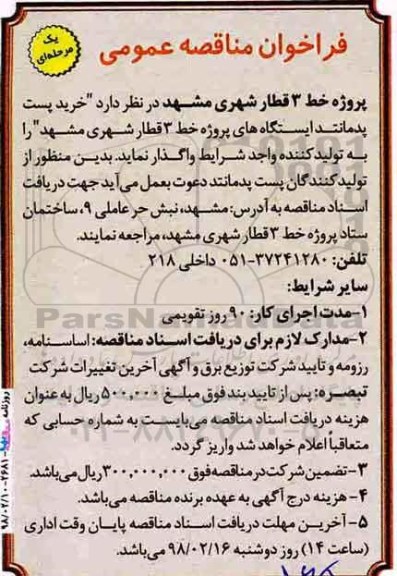 فراخوان مناقصه عمومی
یک
مرحله‌ای
پروژه خط ۳ قطار شهری مشهد در نظر دارد "خرید پست
پدمانتد ایستگاه های پروژه خط ۳ قطار شهری مشهد" را
به تولیدکننده واجد شرایط واگذار نماید. بدین منظور از
تولیدکنندگان پست پدمانتد دعوت بعمل می آید جهت دریافت
اسناد مناقصه به آدرس: مشهد، نبش حر عاملی ۹، ساختمان
ستاد پروژه خط ۳ قطار شهری مشهد، مراجعه نمایند.
تلفن: ۳۷۲۴۱۲۸۰-۰۵۱ داخلی ۲۱۸
سایر شرایط:
۱-مدت اجرای کار: ۹۰ روز تقویمی
۲-مدارک لازم برای دریافت اسناد مناقصه: اساسنامه،
رزومه و تایید شرکت توزیع برق و آگهی آخرین تغییرات شرکت
تبصره: پس از تایید بند فوق مبلغ ۵۰۰,۰۰۰ ریال به عنوان
هزینه دریافت اسناد مناقصه می‌بایست به شماره حسابی که
متعاقباً اعلام خواهد شد واریز گردد.
۳-تضمین شرکت در مناقصه فوق ۳۰۰,۰۰۰,۰۰۰ ریال می‌باشد.
۴- هزینه درج آگهی به عهده برنده مناقصه می‌باشد.
۵- آخرین مهلت دریافت اسناد مناقصه پایان وقت اداری
(ساعت ۱۴) روز دوشنبه ۹۸/۰۲/۱۶ می‌باشد.
ParsNamadData
روزنامه
۹۸/۰۲/۱۰-۲۶۸۱